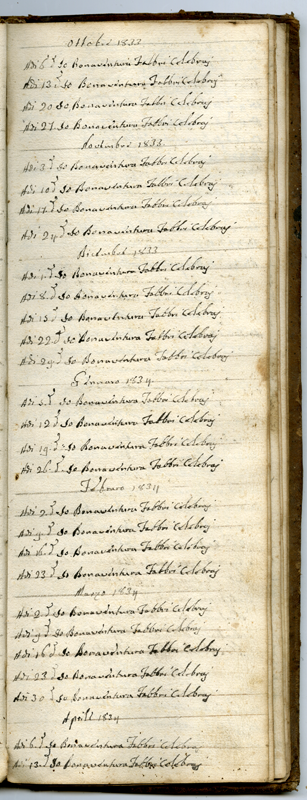 Ottobre 1833
Adi 6 d.o Io Bonaventura Fabbri Celebraj
Adi 13 d.o Io Bonaventura Fabbri Celebraj
Adi 20 Io Bonaventura Fabbri Celebraj
Adi 27 Io Bonaventura Fabbri Celebraj
Novembre 1833
Adi 3 d.o Io Bonaventura Fabbri Celebraj
Adi 10 d.o Io Bonaventura Fabbri Celebraj
Adi 17 d.o Io Bonaventura Fabbri Celebraj
Adi 24 d.o Io Bonaventura Fabbri Celebraj
Dicembre 1833
Adi 1 d.o Io Bonaventura Fabbri Celebraj
Adi 8 d.o Io Bonaventura Fabbri Celebraj
Adi 15 d.o Io Bonaventura Fabbri Celebraj
Adi 22 d.o Io Bonaventura Fabbri Celebraj
Adi 29 d.o Io Bonaventura Fabbri Celebraj
Genaro 1834
Adi 5 d.o Io Bonaventura Fabbri Celebraj
Adi 12 d.o Io Bonaventura Fabbri Celebraj
Adi 19 d.o Io Bonaventura Fabbri Celebraj
Adi 26 d.o Io Bonaventura Fabbri Celebraj
Febraro 1834
Adi 2 d.o Io Bonaventura Fabbri Celebraj
Adi 9 d.o Io Bonaventura Fabbri Celebraj
Adi 16 d.o Io Bonaventura Fabbri Celebraj
Adi 23 d.o Io Bonaventura Fabbri Celebraj
Marzo 1834
Adi 2 d.o Io Bonaventura Fabbri Celebraj
Adi 9 d.o Io Bonaventura Fabbri Celebraj
Adi 16 d.o Io Bonaventura Fabbri Celebraj
Adi 23 d.o Io Bonaventura Fabbri Celebraj
Adi 30 d.o Io Bonaventura Fabbri Celebraj
Aprill 1834
Adi 6 d.o Io Bonaventura Fabbri Celebraj
Adi 13 d.o Io Bonaventura Fabbri Celebraj